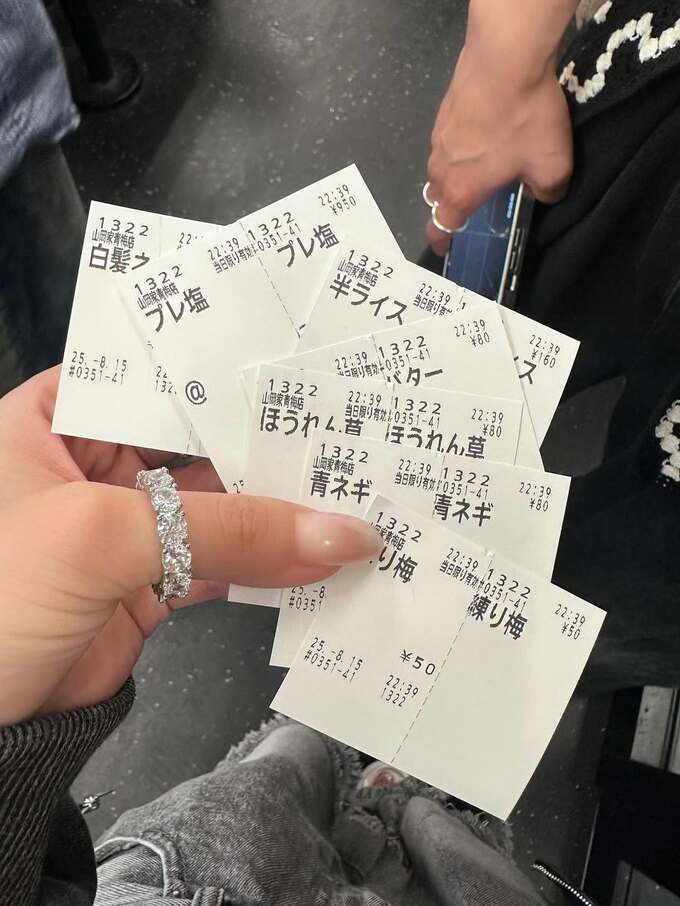 1322
山岡家青梅店
白髪ネ
22:
25.-8.15
#0351-41
1322
山岡家青梅店
プレ塩
22:39
当日限り有効
@
1322
#0351-41
プレ塩
22:39
¥950
1322
山岡家青梅店
半ライス
22:39
当日限り有効
22:39
¥160
ス
1322
#0351-41
バター
22:39
¥80
当日限り有効
1322
山岡家青梅店
ほうれん草
22:39
当日限り有効
1322
#0351-41
ほうれん草
22:39
¥80
1322
山岡家青梅店
青ネギ
22:39
当日限り有効
1322
#0351-41
青ネギ
22:39
¥80
25.-8
#0351
1322
岡家青梅店
り梅
22:39
当日限り有効
¥50
25.-8.15
#0351-41
22:39
1322
1322
#0351-41
練り梅
22:39
¥50